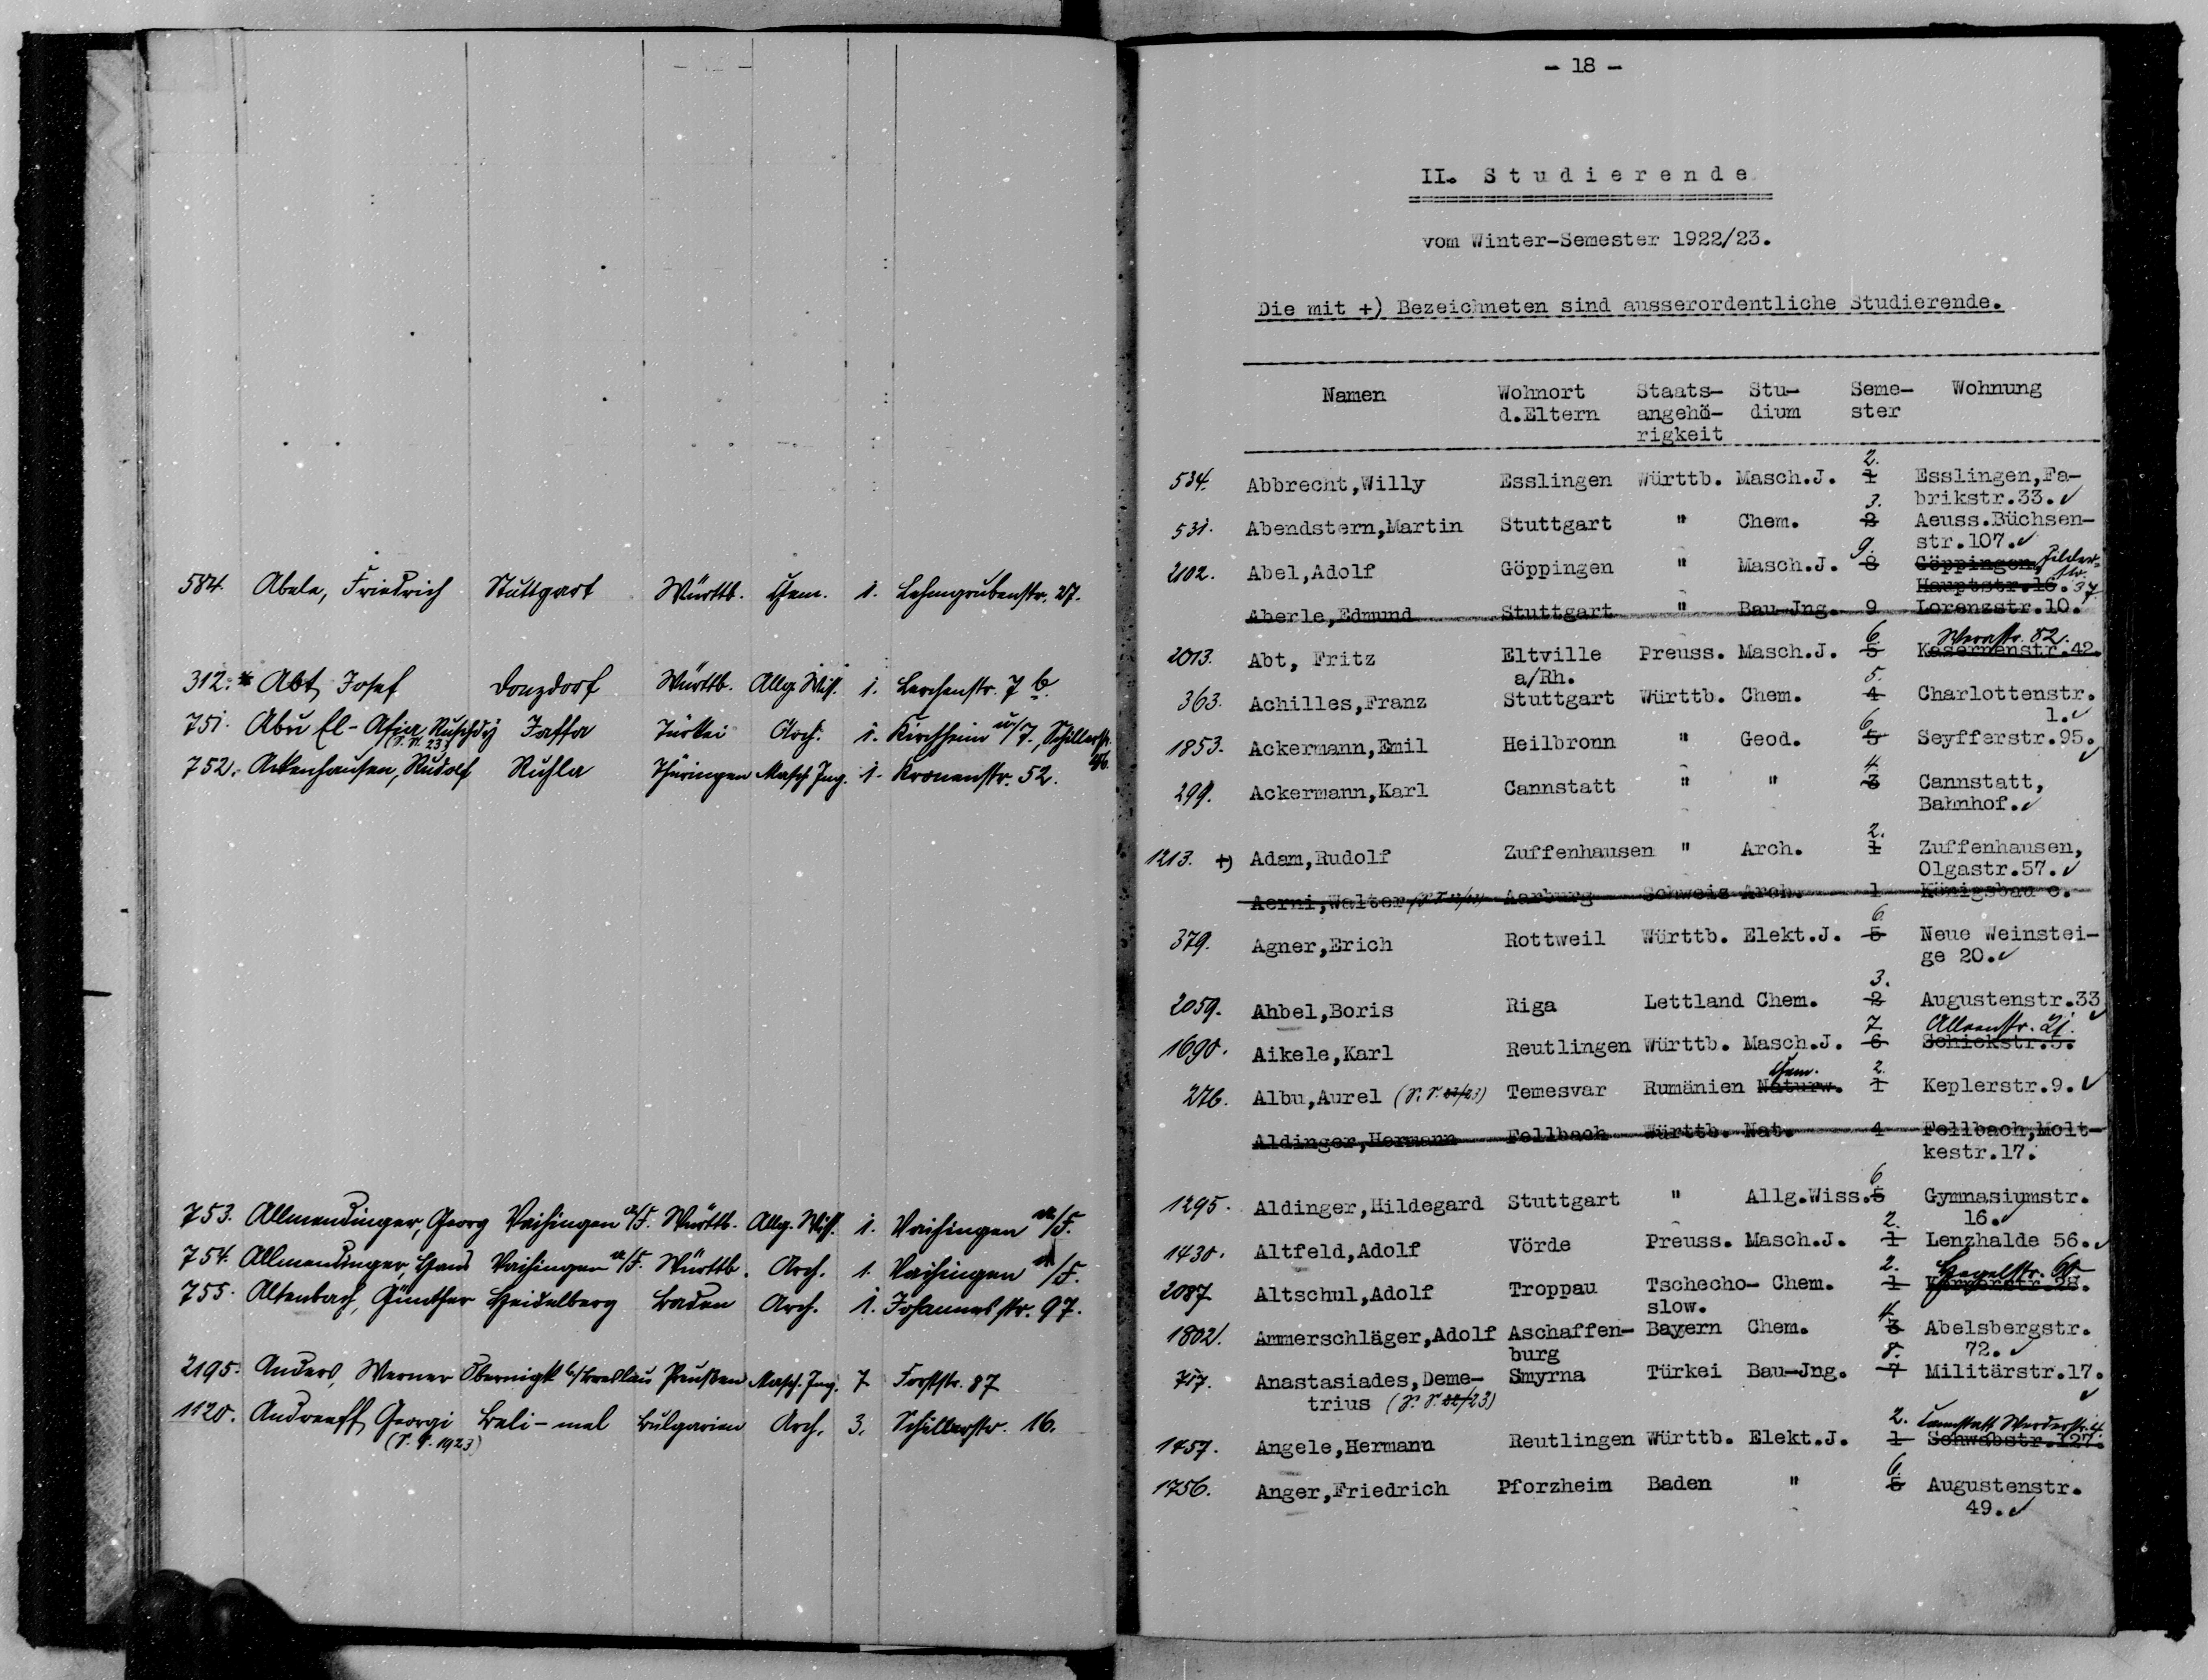 584. Abele, Friedrich Stuttgart Württb. Chem. 1. Lehmgrubenstr. 27.
312. * Abt, Josef Donzdorf Württb. Allg. Wiss. 1. Lerchenstr. 7 b.
751. Abu El-Afia, Ruschdy Jaffa Türkei Arch. 1. Kirchheim u/T., Schillerstr.
752. Ackenhausen, Rudolf Ruhla Thüringen Masch. Ing. 1. Kronenstr. 52.
753. Allmendinger, Georg Vaihingen a/F. Württb. Allg. Wiss. 1. Vaihingen a/F.
754. Allmendinger, Hans Vaihingen a/F. Württb. Arch. 1. Vaihingen a/F.
755. Altenbach, Günther Heidelberg Baden Arch. 1. Johannesstr. 97.
2195. Anders, Werner Obernigk b/Breslau Preußen Masch. Ing. 7 Forststr. 87
1120. Andreeff, Georgi Beli-mel Bulgarien Arch. 3. Schillerstr. 16.
(S. S. 1923)
- 18 -
II. Studierende
vom Winter-Semester 1922/23.
Die mit +) Bezeichneten sind ausserordentliche Studierende.
Namen Wohnort Staats- Stu- Seme- Wohnung
d.Eltern angehö- dium ster
rigkeit
2.
534. Abbrecht,Willy Esslingen Württb. Masch.J. 1 Esslingen,Fa-
brikstr.33.
3.
531. Abendstern,Martin Stuttgart " Chem. 2 Aeuss.Büchsen-
str.107.
9.
2102. Abel,Adolf Göppingen " Masch.J. 8 Göppingen, Filder-
str.
Hauptstr.16. 37
Aberle,Edmund Stuttgart " Bau-Jng. 9 Lorenzstr.10.
6. Werastr. 82.
2013. Abt, Fritz Eltville Preuss. Masch.J. 5 Kasernenstr.42.
a/Rh.
5.
363. Achilles,Franz Stuttgart Württb. Chem. 4 Charlottenstr.
1.
6.
1853. Ackermann,Emil Heilbronn " Geod. 5 Seyfferstr.95.
4.
299. Ackermann,Karl Cannstatt " " 3 Cannstatt,
Bahnhof.
2.
1213. +) Adam,Rudolf Zuffenhausen " Arch. 1 Zuffenhausen,
Olgastr.57.
Aerni,Walter Aarburg Schweiz Arch. 1 Königsbau c.
6.
379. Agner,Erich Rottweil Württb. Elekt.J. 5 Neue Weinstei-
ge 20.
3.
2059. Ahbel,Boris Riga Lettland Chem. 2 Augustenstr.33
7 Alleenstr. 21.
1690. Aikele,Karl Reutlingen Württb. Masch.J. 6 Schickstr.5.
Chem. 2.
276. Albu,Aurel (S. S. 22/23) Temesvar Rumänien Naturw. 1 Keplerstr.9.
Aldinger,Hermann Fellbach Württb. Nat. 4 Fellbach,Molt-
kestr.17.
6
1295. Aldinger,Hildegard Stuttgart " Allg.Wiss. 5 Gymnasiumstr.
16.
2.
1430. Altfeld,Adolf Vörde Preuss. Masch.J. 1 Lenzhalde 56.
2. Hegelstr. 60
2087 Altschul,Adolf Troppau Tschecho- Chem. 1
slow.
4.
1802. Ammerschläger,Adolf Aschaffen- Bayern Chem. 3 Abelsbergstr.
burg 72.
8.
757. Anastasiades,Deme- Smyrna Türkei Bau-Jng. 7 Militärstr.17.
trius (S. S. 22/23)
2. Cannstatt Werderstr. 4.
1457. Angele,Hermann Reutlingen Württb. Elekt.J. 1 Schwabstr.127.
6.
1756. Anger,Friedrich Pforzheim Baden " 5 Augustenstr.
49.